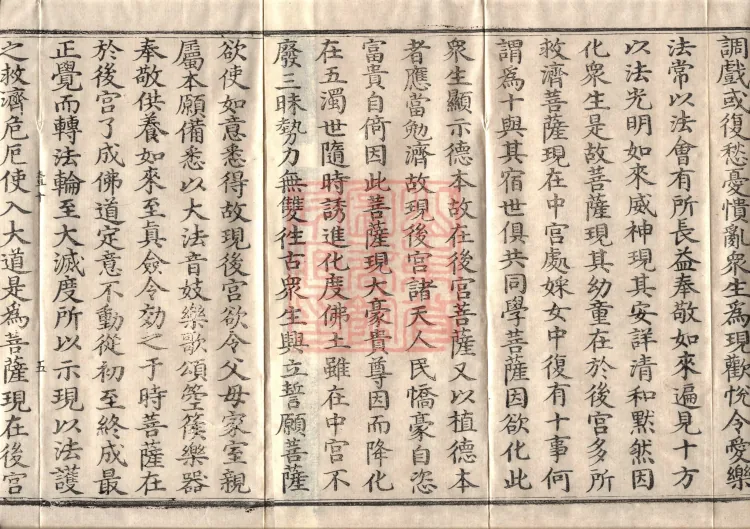 調戲或復愁憂憒亂衆生爲現歡悅令愛樂
法常以法會有所長益奉敬如來遍見十方
以法光明如來威神現其安詳清和默然因
化衆生是故菩薩現其幼童在於後宮多所
救濟菩薩現在中宮處婇女中復有十事何
謂爲十與其宿世俱共同學菩薩因欲化此
衆生顯示德本故在後宮菩薩又以植德本
者應當勉濟故現後宮諸天人民憍豪自恣
富貴自倚因此菩薩現大豪貴尊因而降化
在五濁世隨時誘進化度佛土雖在中宮不
廢三昧勢力無雙徃古衆生興立誓願菩薩
欲使如意悉得故現後宮欲令父母家室親
屬本願備悉以大法音妓樂歌頌箜篌樂器
奉敬供養如來至眞僉令効之于時菩薩在
於後宮了成佛道定意不動從初至終成最
正覺而轉法輪至大滅度所以示現以法護
之救濟危厄使入大道是爲菩薩現在後宮
五